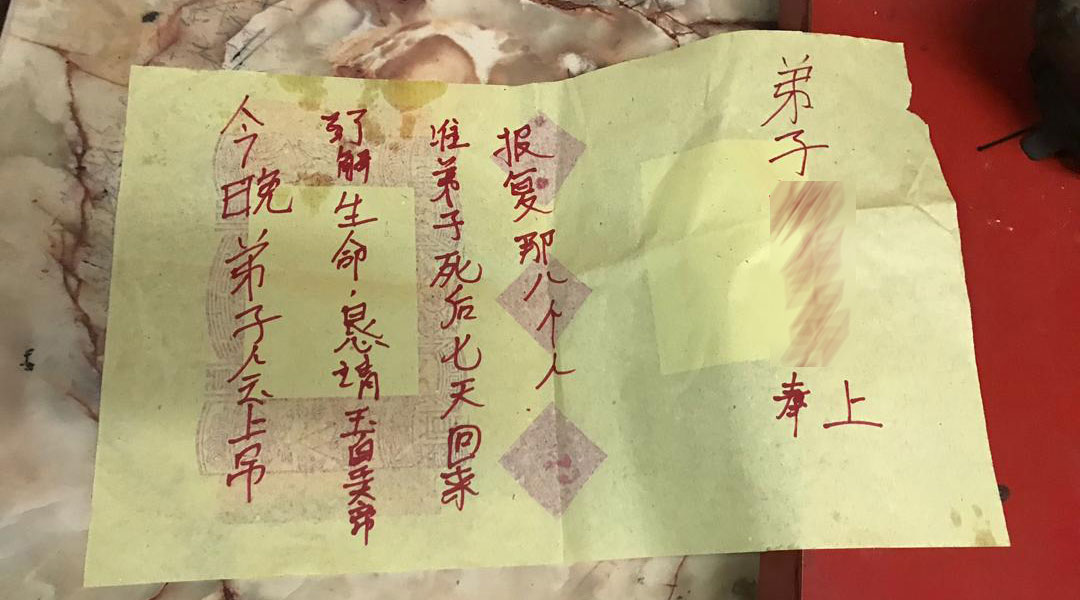 今晚弟子会上吊
了解生命.恳请玉皇大帝
准弟子死后七天回来
报复那八个人.
弟子
奉上